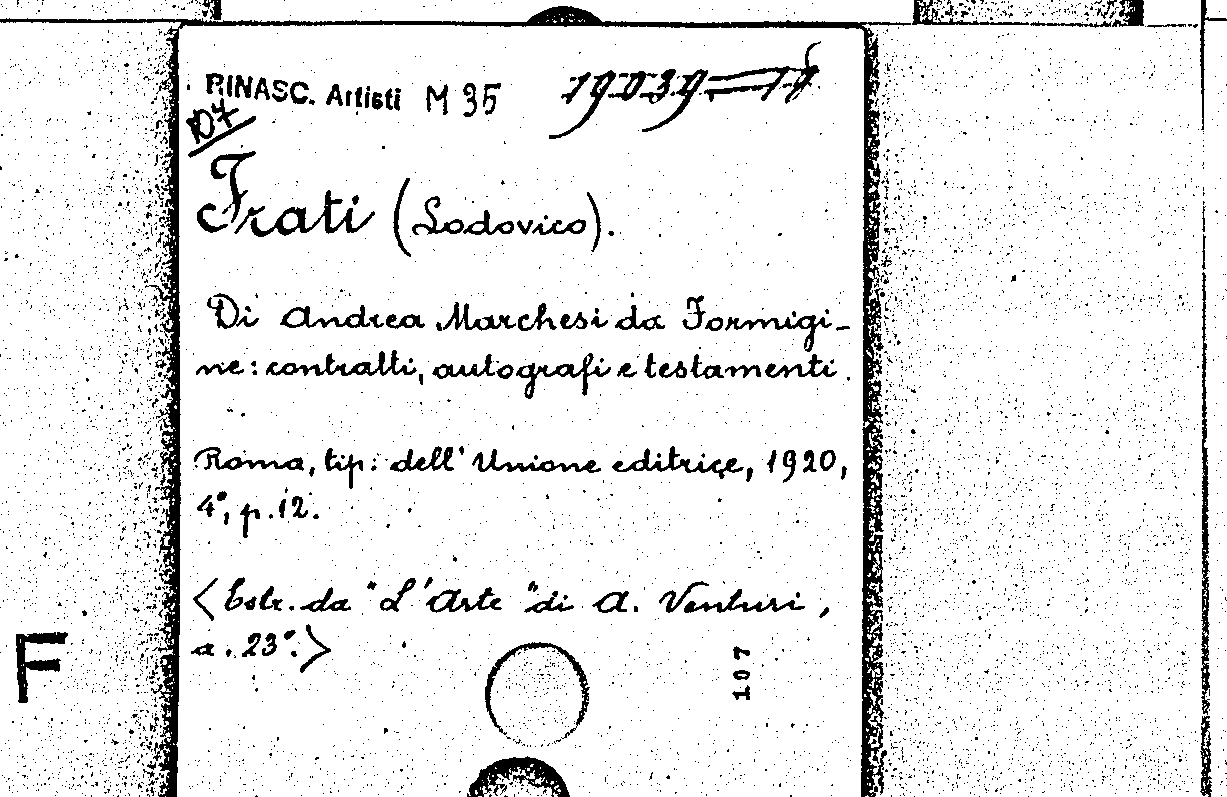 RINASC. Artisti M 35
107
Frati (Lodovico).
Di Andrea Marchesi da Formigi-
ne: contratti, autografi e testamenti.
Roma, tip: dell' Unione editrice, 1920,
4°, p. 12.
<Estr. da "L'Arte" di A. Venturi,
a. 23°.>
107
F